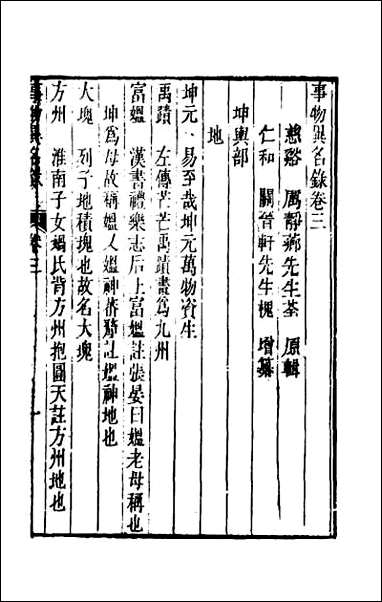 事物異名錄卷三
慈谿　厲靜薌先生荃　原輯
仁和　關晉軒先生槐　增纂
坤輿部
地
坤元　易至哉坤元萬物資生
禹蹟　左傳芒芒禹蹟畫爲九州
富媼　漢書禮樂志后土富媼註張晏曰媼老母稱也
坤爲母故稱媼又媼神蕃釐註媼神地也
大塊　列子地積塊也故名大塊
方州　淮南子女媧氏背方州抱圓天註方州地也
事物異名錄　卷三　一